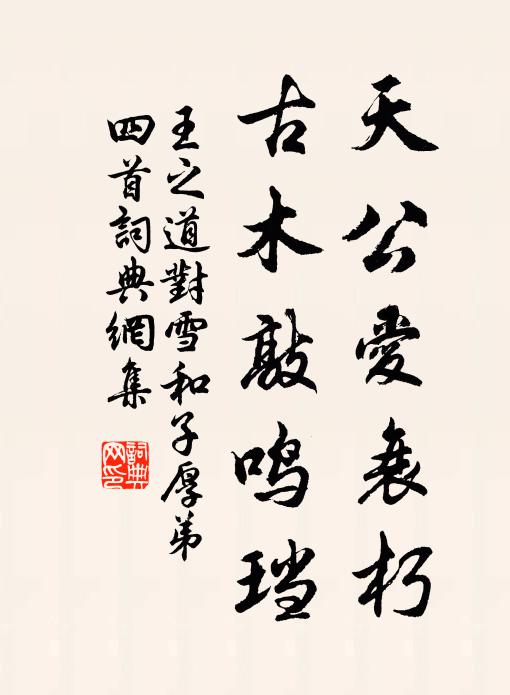 天公愛衰朽
古木敲鸣珰
王之道對雪和子厚弟
四首詞典網集
詞典
网印